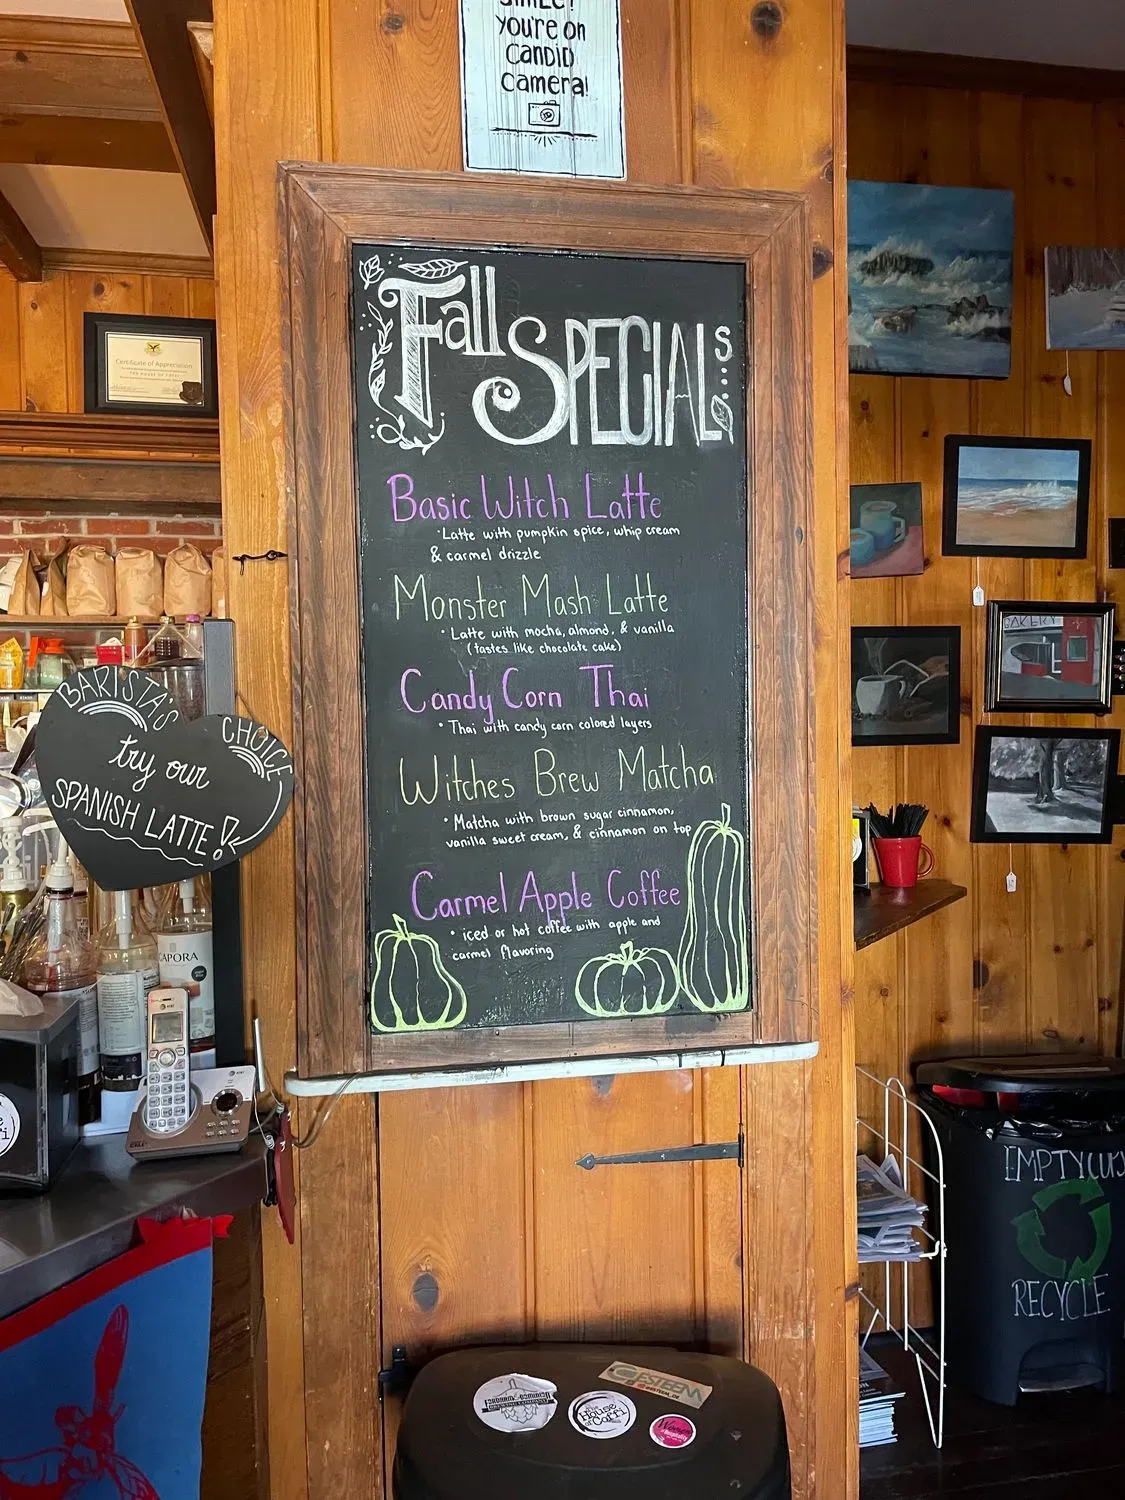 SMILE!
you're on
candid
camera!
Fall SPECIALS
Basic Witch Latte
·Latte with pumpkin spice, whip cream
& carmel drizzle
Monster Mash Latte
·Latte with mocha, almond, & vanilla
(tastes like chocolate cake)
Candy Corn Thai
·Thai with candy corn colored layers
Witches Brew Matcha
·Matcha with brown sugar cinnamon,
vanilla sweet cream, & cinnamon on top
Carmel Apple Coffee
·iced or hot coffee with apple and
carmel flavoring
Certificate of Appreciation
BARISTA'S CHOICE
try our
SPANISH LATTE!
CAPORA
at&t
BAKERY
EMPTY CUPS
RECYCLE
ESTEEM
The
House
of
Coffi